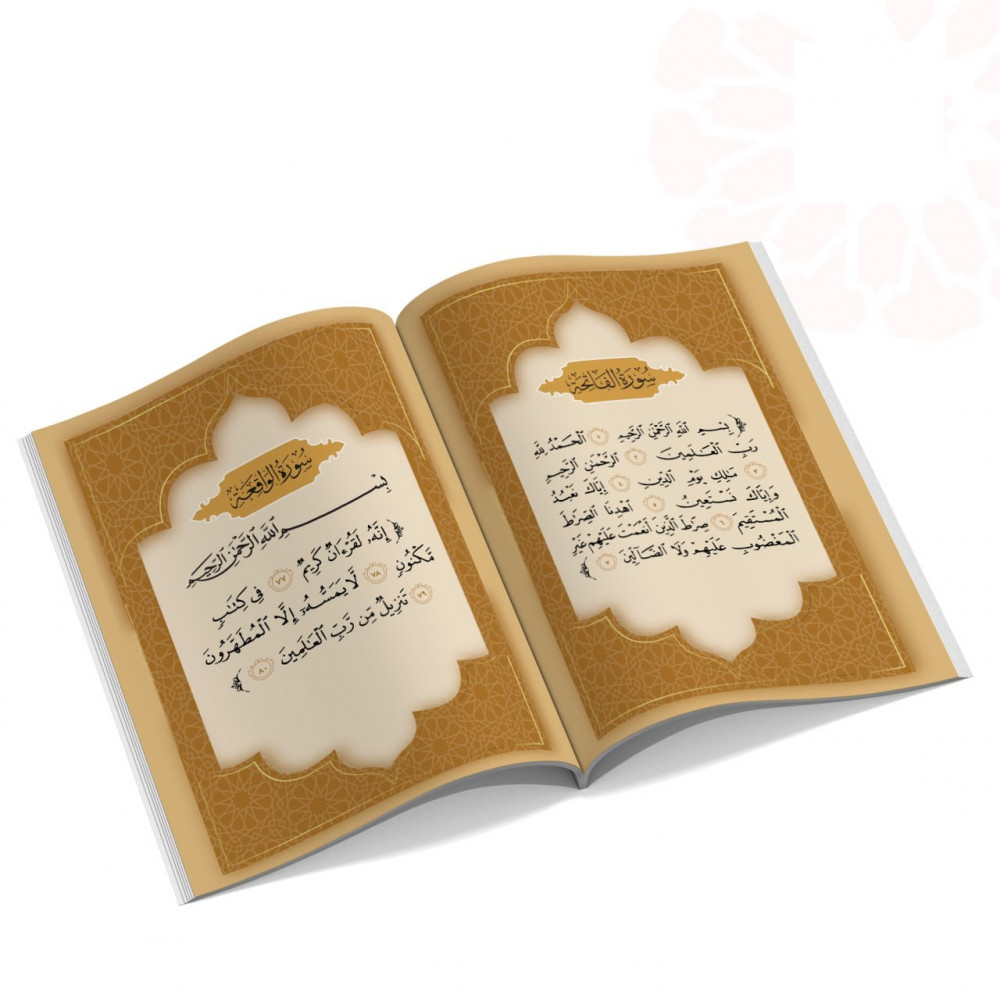 سُورَةُ الْفَاتِحَةِ
﴿ بِسْمِ ٱللَّهِ ٱلرَّحْمَٰنِ ٱلرَّحِيمِ ١ ٱلْحَمْدُ لِلَّهِ
رَبِّ ٱلْعَٰلَمِينَ ٢ ٱلرَّحْمَٰنِ ٱلرَّحِيمِ
٣ مَٰلِكِ يَوْمِ ٱلدِّينِ ٤ إِيَّاكَ نَعْبُدُ
وَإِيَّاكَ نَسْتَعِينُ ٥ ٱهْدِنَا ٱلصِّرَٰطَ
ٱلْمُسْتَقِيمَ ٦ صِرَٰطَ ٱلَّذِينَ أَنْعَمْتَ عَلَيْهِمْ غَيْرِ
ٱلْمَغْضُوبِ عَلَيْهِمْ وَلَا ٱلضَّآلِّينَ ٧ ﴾
سُورَةُ الْوَاقِعَةِ
بِسْمِ ٱللَّهِ ٱلرَّحْمَٰنِ ٱلرَّحِيمِ
﴿ إِنَّهُۥ لَقُرْءَانٌ كَرِيمٌ ٧٧ فِي كِتَٰبٍ
مَّكْنُونٍ ٧٨ لَّا يَمَسُّهُۥٓ إِلَّا ٱلْمُطَهَّرُونَ
٧٩ تَنزِيلٌ مِّن رَّبِّ ٱلْعَٰلَمِينَ ٨٠ ﴾